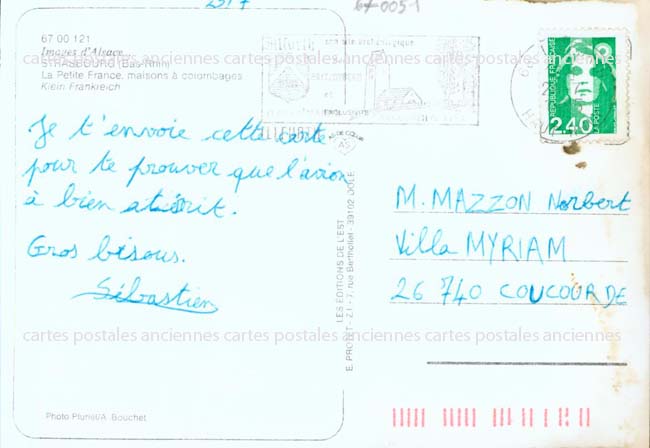 67-0051
67 00 121
Images d'Alsace
STRASBOURG (Bas-Rhin)
La Petite France, maisons à colombages
Klein Frankreich
son site archéologique
et
EXCLUSIVITÉ
REPUBLIQUE FRANÇAISE
2,40
LA POSTE
Je t'envoie cette carte
pour te prouver que l'avion
à bien
Gros bisous.
Sébastien
M. MAZZON Norbert
Villa MYRIAM
26 740 COUCOURDE
LES EDITIONS DE L'EST
E. PROTET - Z.I - 7, rue Berthollet - 39102 DOLE
cartes postales anciennes cartes postales anciennes cartes postales anciennes
cartes postales anciennes cartes postales anciennes cartes postales anciennes
Photo Pluriel/A. Bouchet